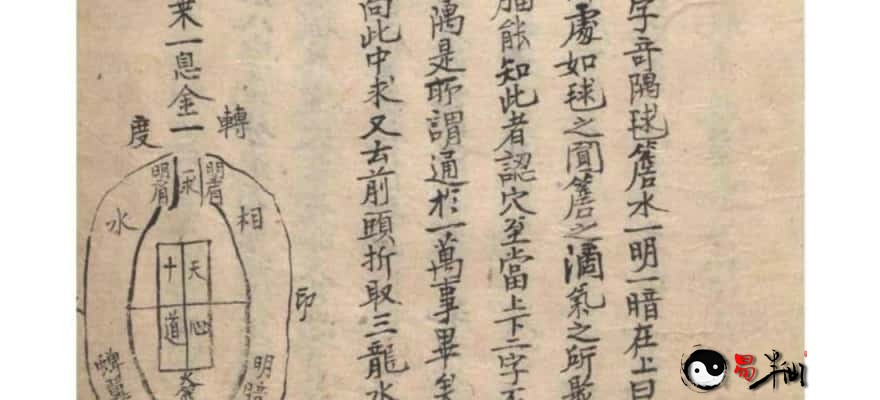 字奇隅毬簷水一明一暗在上曰
處如毬之圓簷之滴氣之所
能知此者認穴至當上下二字
隅是所謂通於一萬事畢矣
向此中求又去前頭折取三龍水
葉一息金一
轉
度
明肩
毬
明肩
水
相
十
天
道
心
印
蟬翼
明暗
易半仙